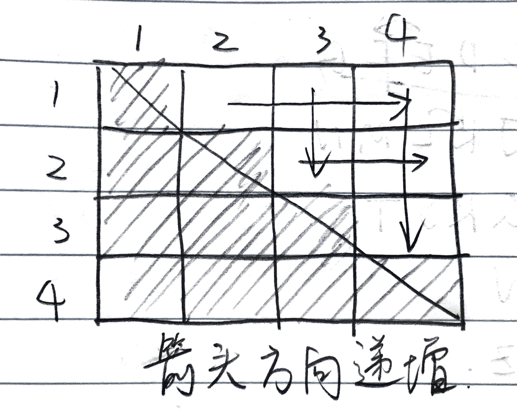 1 2 3 4
1
2
3
4
箭头方向递增.